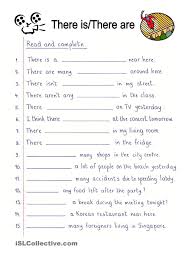 There is/There are
Read and complete
1. There is a ________ near here.
2. There are many ________ around here.
3. There isn't ________ in the street.
4. There aren't any ________ in the class.
5. There ________ on TV yesterday
6. I think there ________ at the concert tomorrow.
7. There ________ in my living room
8. There ________ in the fridge
9. ________ many shops in the city centre.
10. ________ a lot of people on the beach yesterday.
11. ________ many accidents due to speeding lately
12. ________ any food left after the party?
13. ________ a break during the meeting tonight?
14. ________ a Korean restaurant near here.
15. ________ many foreigners living in Singapore.
iSLCollective.com